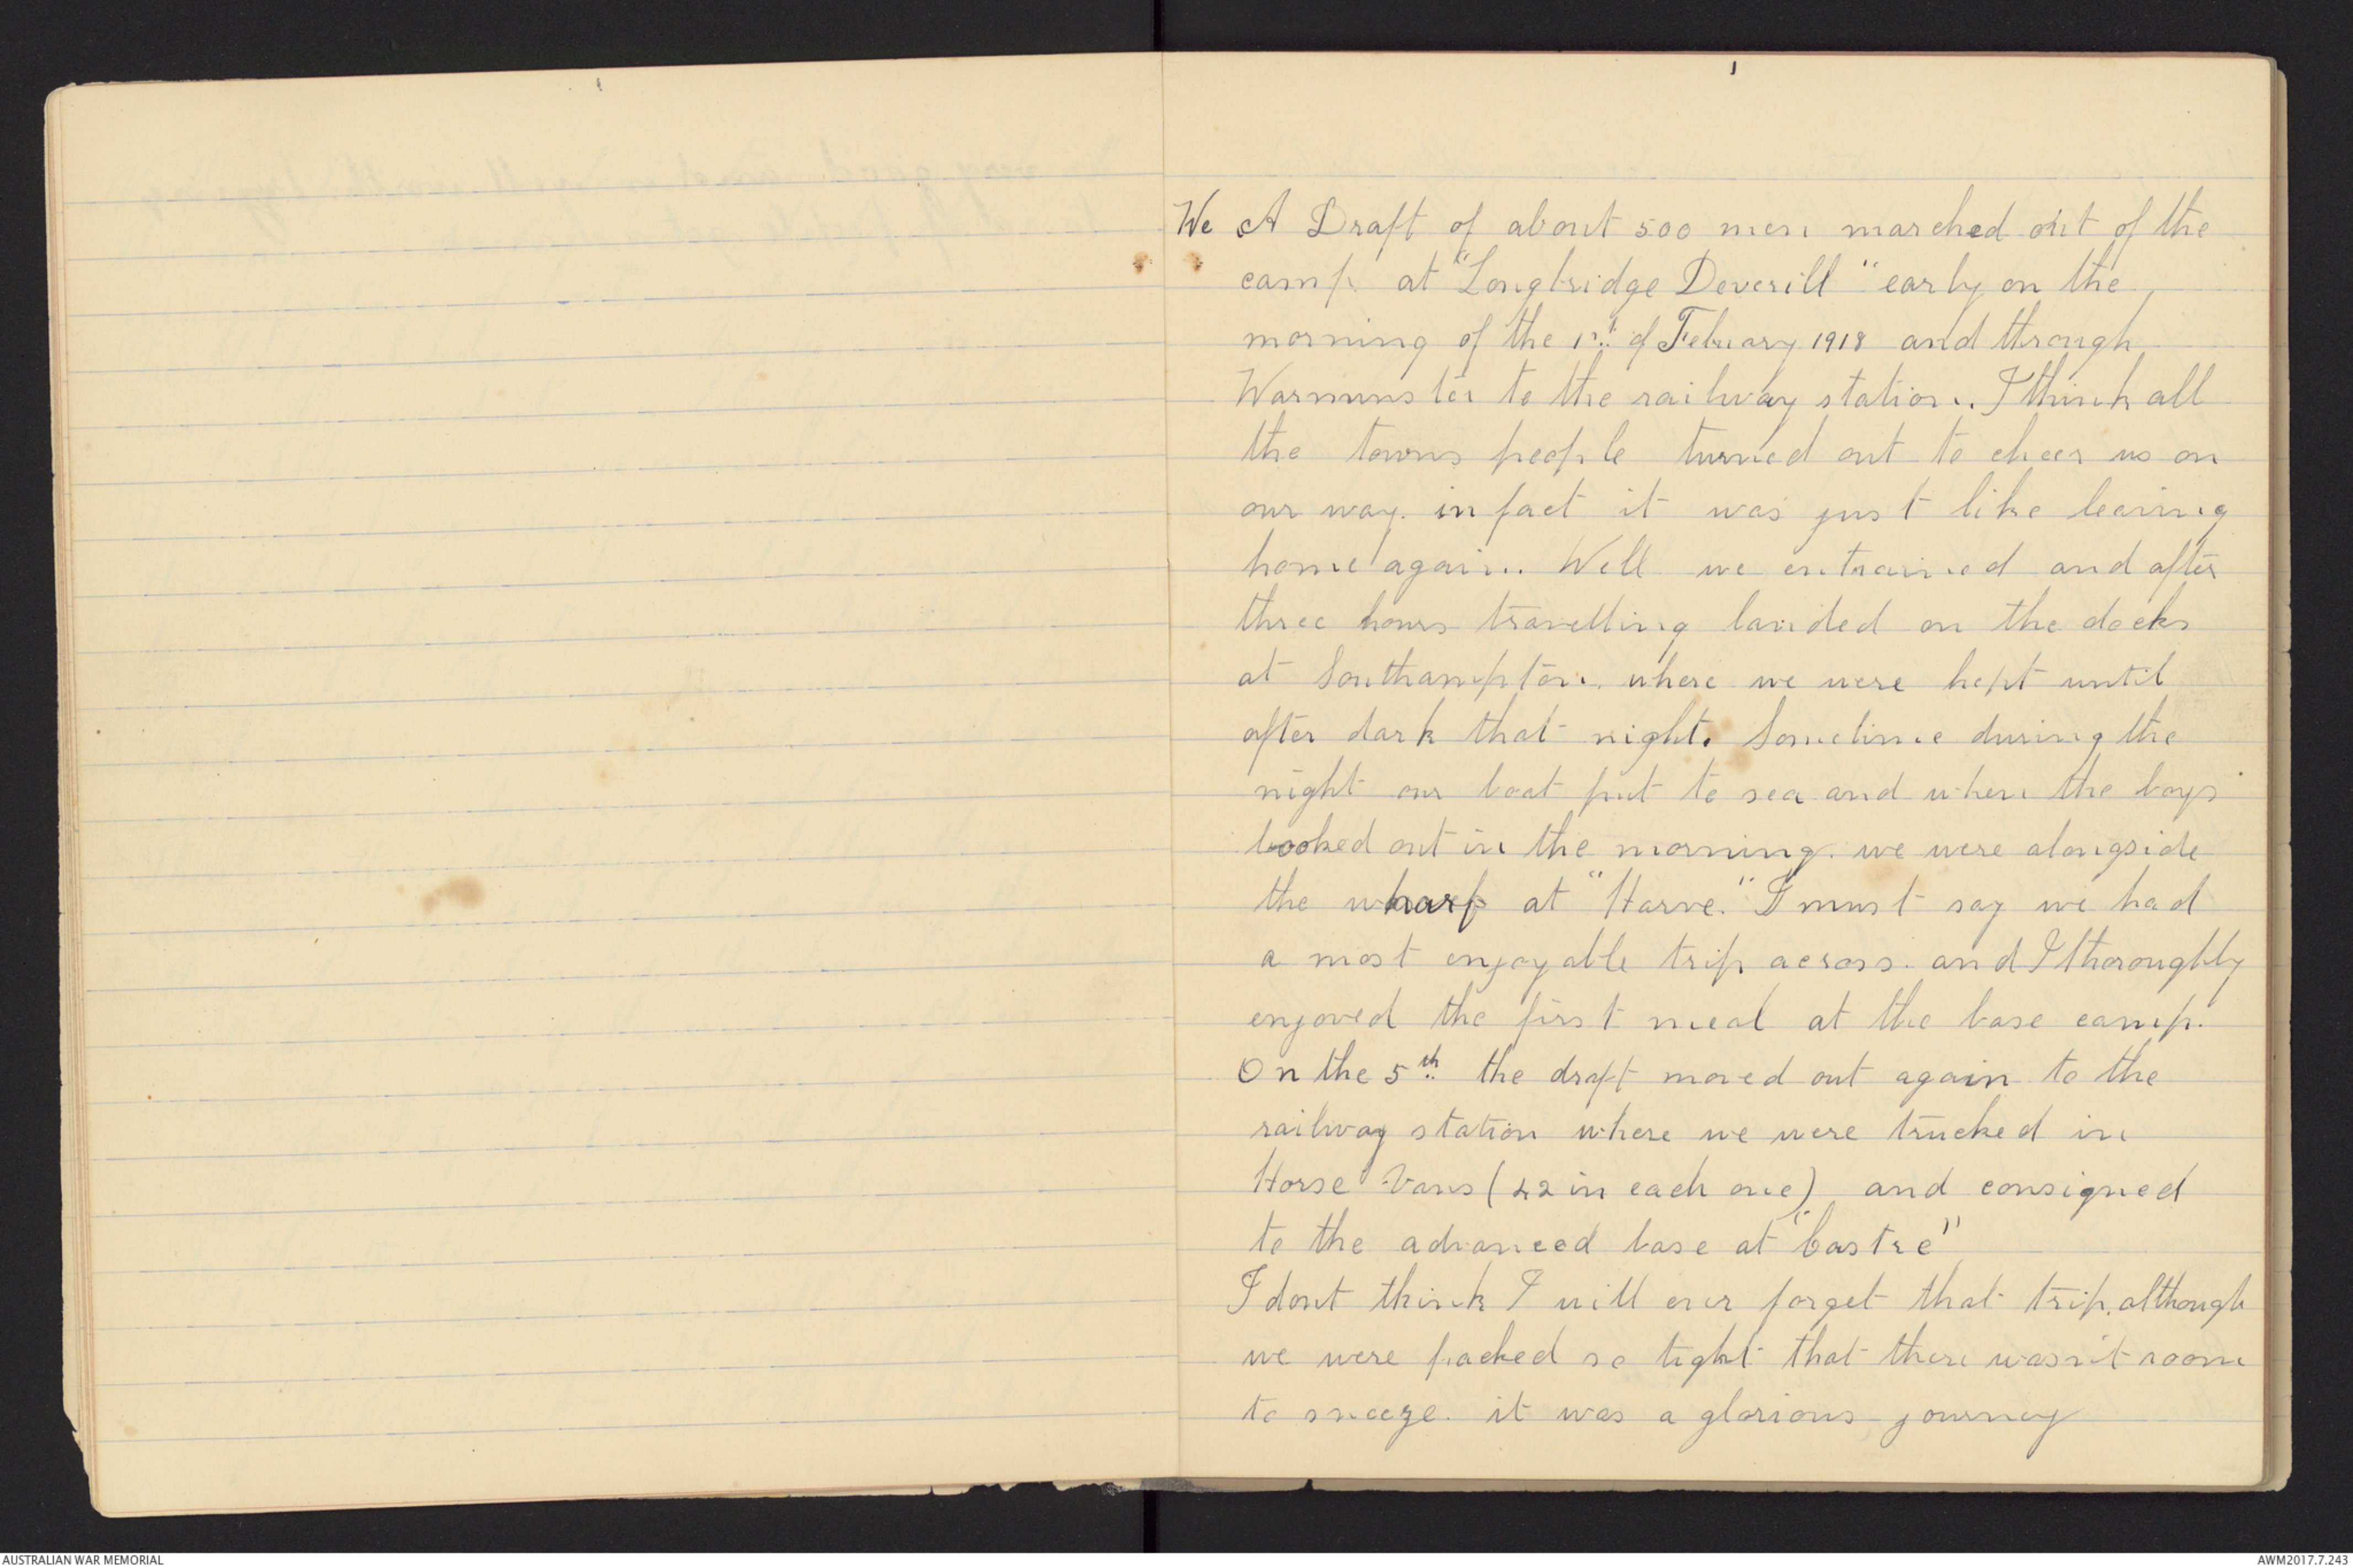 We A Draft of about 500 men marched out of the
camp at "Longbridge Deverill" early on the
morning of the 1st of Febuary 1918 and through
Warmunster to the railway station. I think all
the towns people turned out to cheer us on
our way. in fact it was just like leaving
home again. Well we entrained and after
three hours travelling landed on the docks
at Southampton. where we were kept until
after dark that night. Sometime during the
night our boat put to sea and when the boys
looked out in the morning. we were alongside
the wharf at "Harve." I must say we had
a most enjoyable trip across. and I thoroughly
enjoved the first meal at the base camp.
On the 5th the draft moved out again to the
railway station where we were trucked in
Horse Vans (42 in each one) and consigned
to the advanced base at "Castre"
I dont think I will ever forget that trip. although
we were packed so tight that there wasn't room
to sneeze. it was a glorious journey
AUSTRALIAN WAR MEMORIAL
AWM2017.7.243